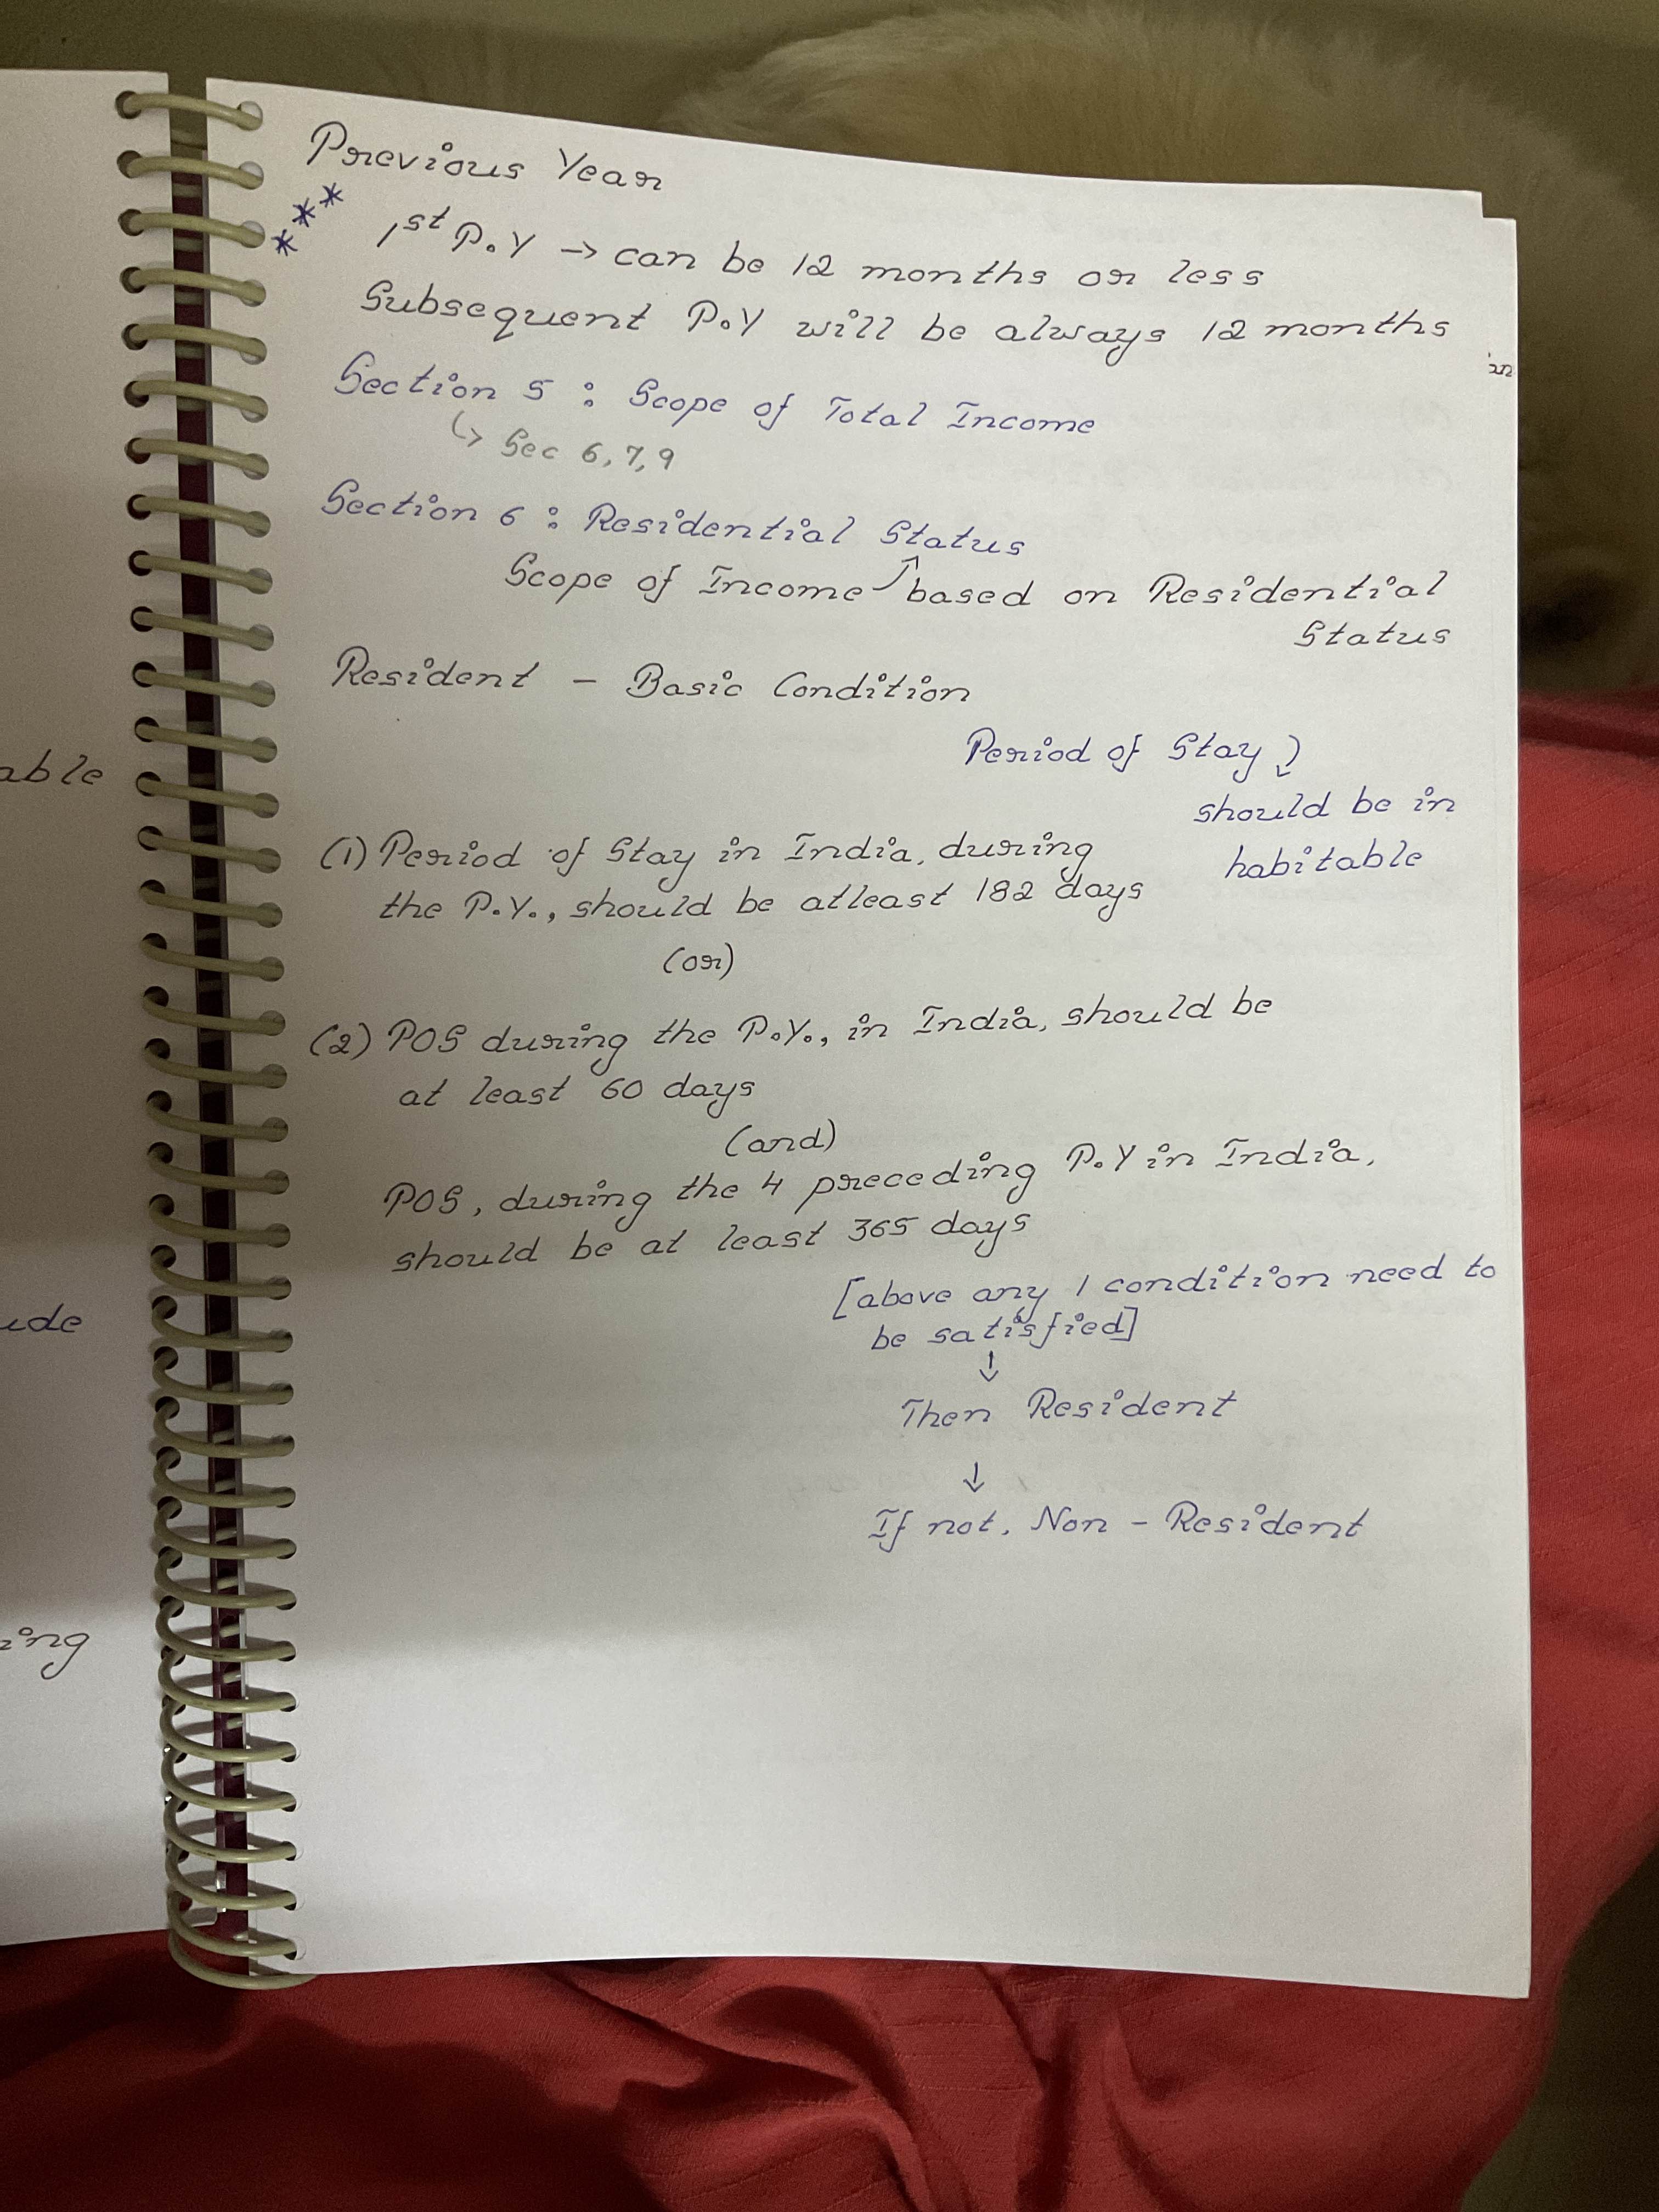 Previous Year
*** 1st P.Y → can be 12 months or less
Subsequent P.Y will be always 12 months
Section 5 : Scope of Total Income
↳ Sec 6, 7, 9
Section 6 : Residential Status
Scope of Income based on Residential
Status
Resident - Basic Condition
Period of Stay
should be in
habitable
(1) Period of Stay in India, during
the P.Y., should be atleast 182 days
(or)
(2) POS during the P.Y., in India, should be
at least 60 days
(and)
POS, during the 4 preceding P.Y in India,
should be at least 365 days
[above any 1 condition need to
be satisfied]
↓
Then Resident
↓
If not, Non - Resident
able
ude
ing
in